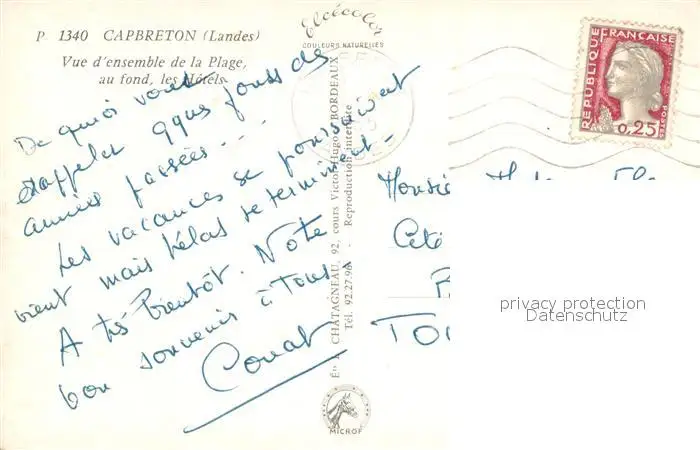 P 1340 CAPBRETON (Landes)
Vue d'ensemble de la Plage,
au fond, les Hôtels
Elcécolor
COULEURS NATURELLES
RÉPUBLIQUE FRANÇAISE
POSTES
0,25
De quoi vous
rappeler qques jours des
années passées...
Les vacances se poursuivent
bien mais hélas se terminent.
A très bientôt. Notre
bon souvenir à Tous.
CHATAGNEAU, 92, cours Victor-Hugo - BORDEAUX
Tél. 92.27.96 - Reproduction interdite
MICROF
Cité
privacy protection
Datenschutz